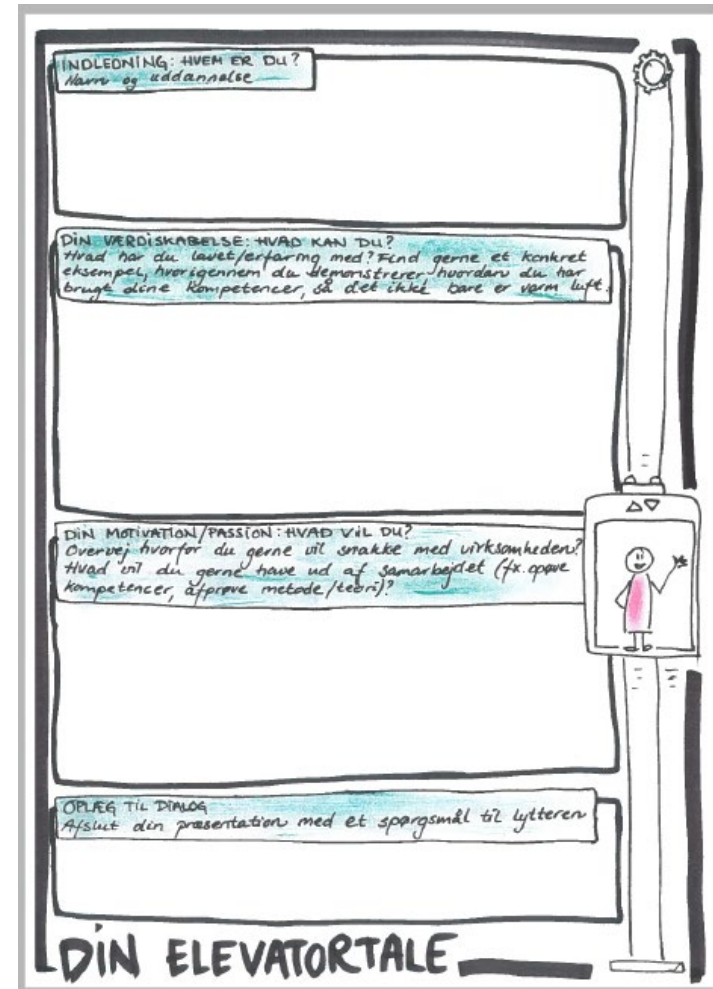 INDLEDNING: HVEM ER DU?
Navn og uddannelse
DIN VÆRDISKABELSE: HVAD KAN DU?
Hvad har du lavet/erfaring med? Find gerne et konkret
eksempel, hvorigennem du demonstrerer hvordan du har
brugt dine kompetencer, så det ikke bare er varm luft.
DIN MOTIVATION/PASSION: HVAD VIL DU?
Overvej hvorfor du gerne vil snakke med virksomheden?
Hvad vil du gerne have ud af samarbejdet (fx. opøve
kompetencer, afprøve metode/teori)?
OPLÆG TIL DIALOG
Afslut din præsentation med et spørgsmål til lytteren
DIN ELEVATORTALE